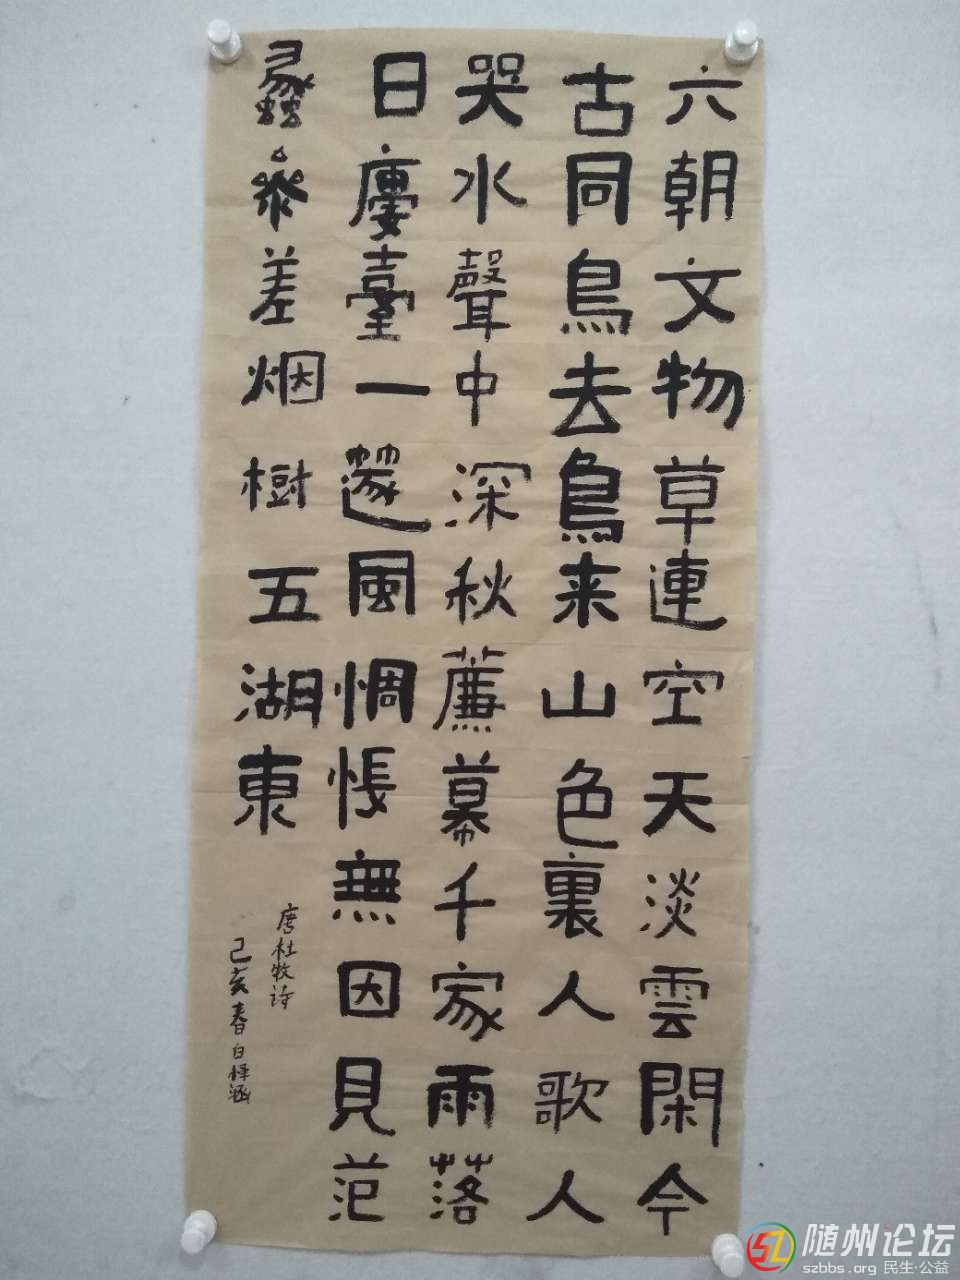 六朝文物草連空天淡雲閑今
古同鳥去鳥来山色裏人歌人
哭水聲中深秋薕幕千家雨落
日廔臺一篴風惆悵無因見范
蠡參差烟樹五湖東
唐杜牧诗
己亥春白涵
随州论坛
szbbs.org 民生·公益